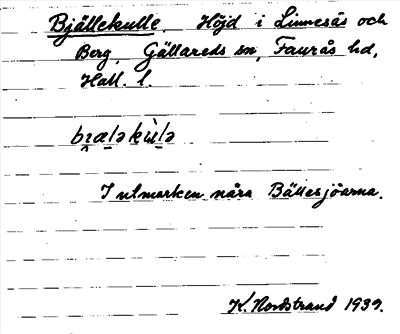 Bjällekulle. Höjd i Linnesås och
Berg, Gällareds sn, Faurås hd,
Hall. l.
bi̯æl̠əkùl̠ə
I utmarken nära Bällesjöarna.
K. Nordstrand 1939.